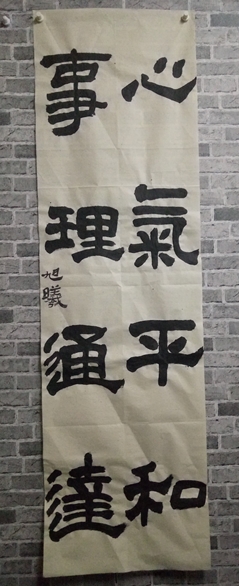 心氣平和
事理通達
旭曦